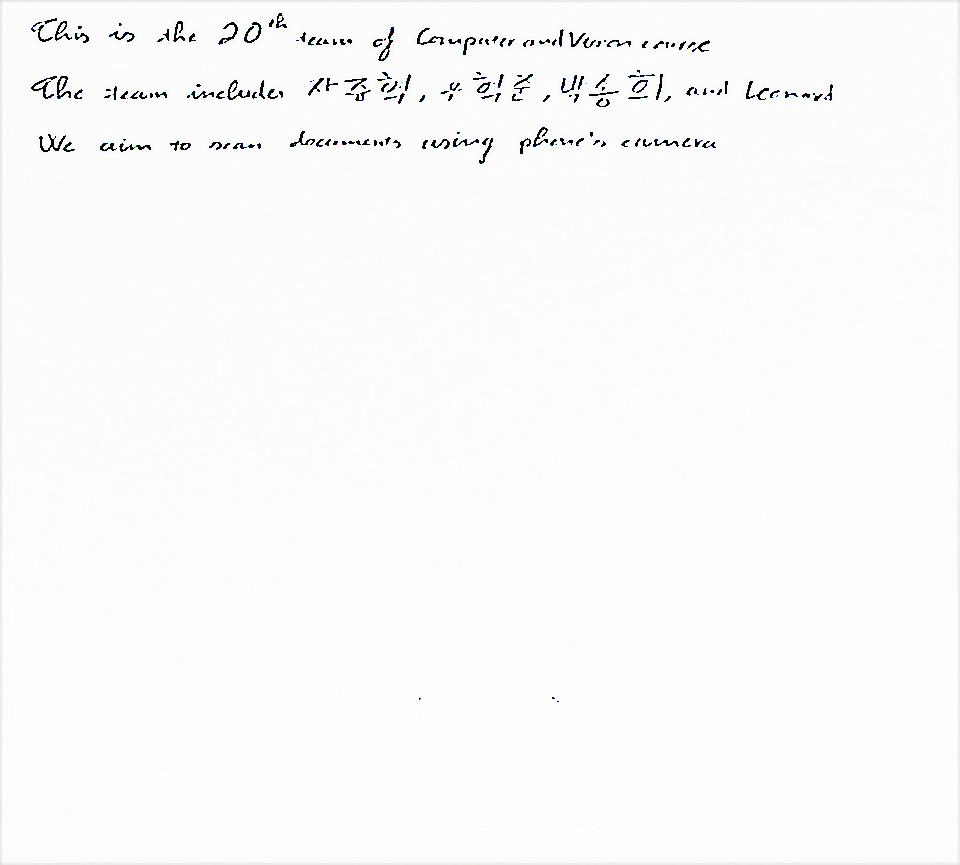 This is the 20th team of Computer and Vision course
The team includes 사중혁, 우혁준, 박승희, and Leonard
We aim to scan documents using phone's camera